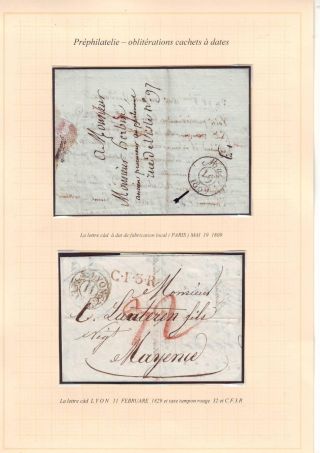 Préphilatelie – oblitérations cachets à dates
A Monsieur
Monsieur
ancien procureur
n° 97
La lettre càd à dat de fabrication local ( PARIS ) MAI 19 1809
LYON
C.F.3.R
Monsieur
C. Lauteren fils
Négt
Mayence
La lettre càd L Y O N 11 FEBRUARE 1829 et taxe tampon rouge 32 et C.F.3.R